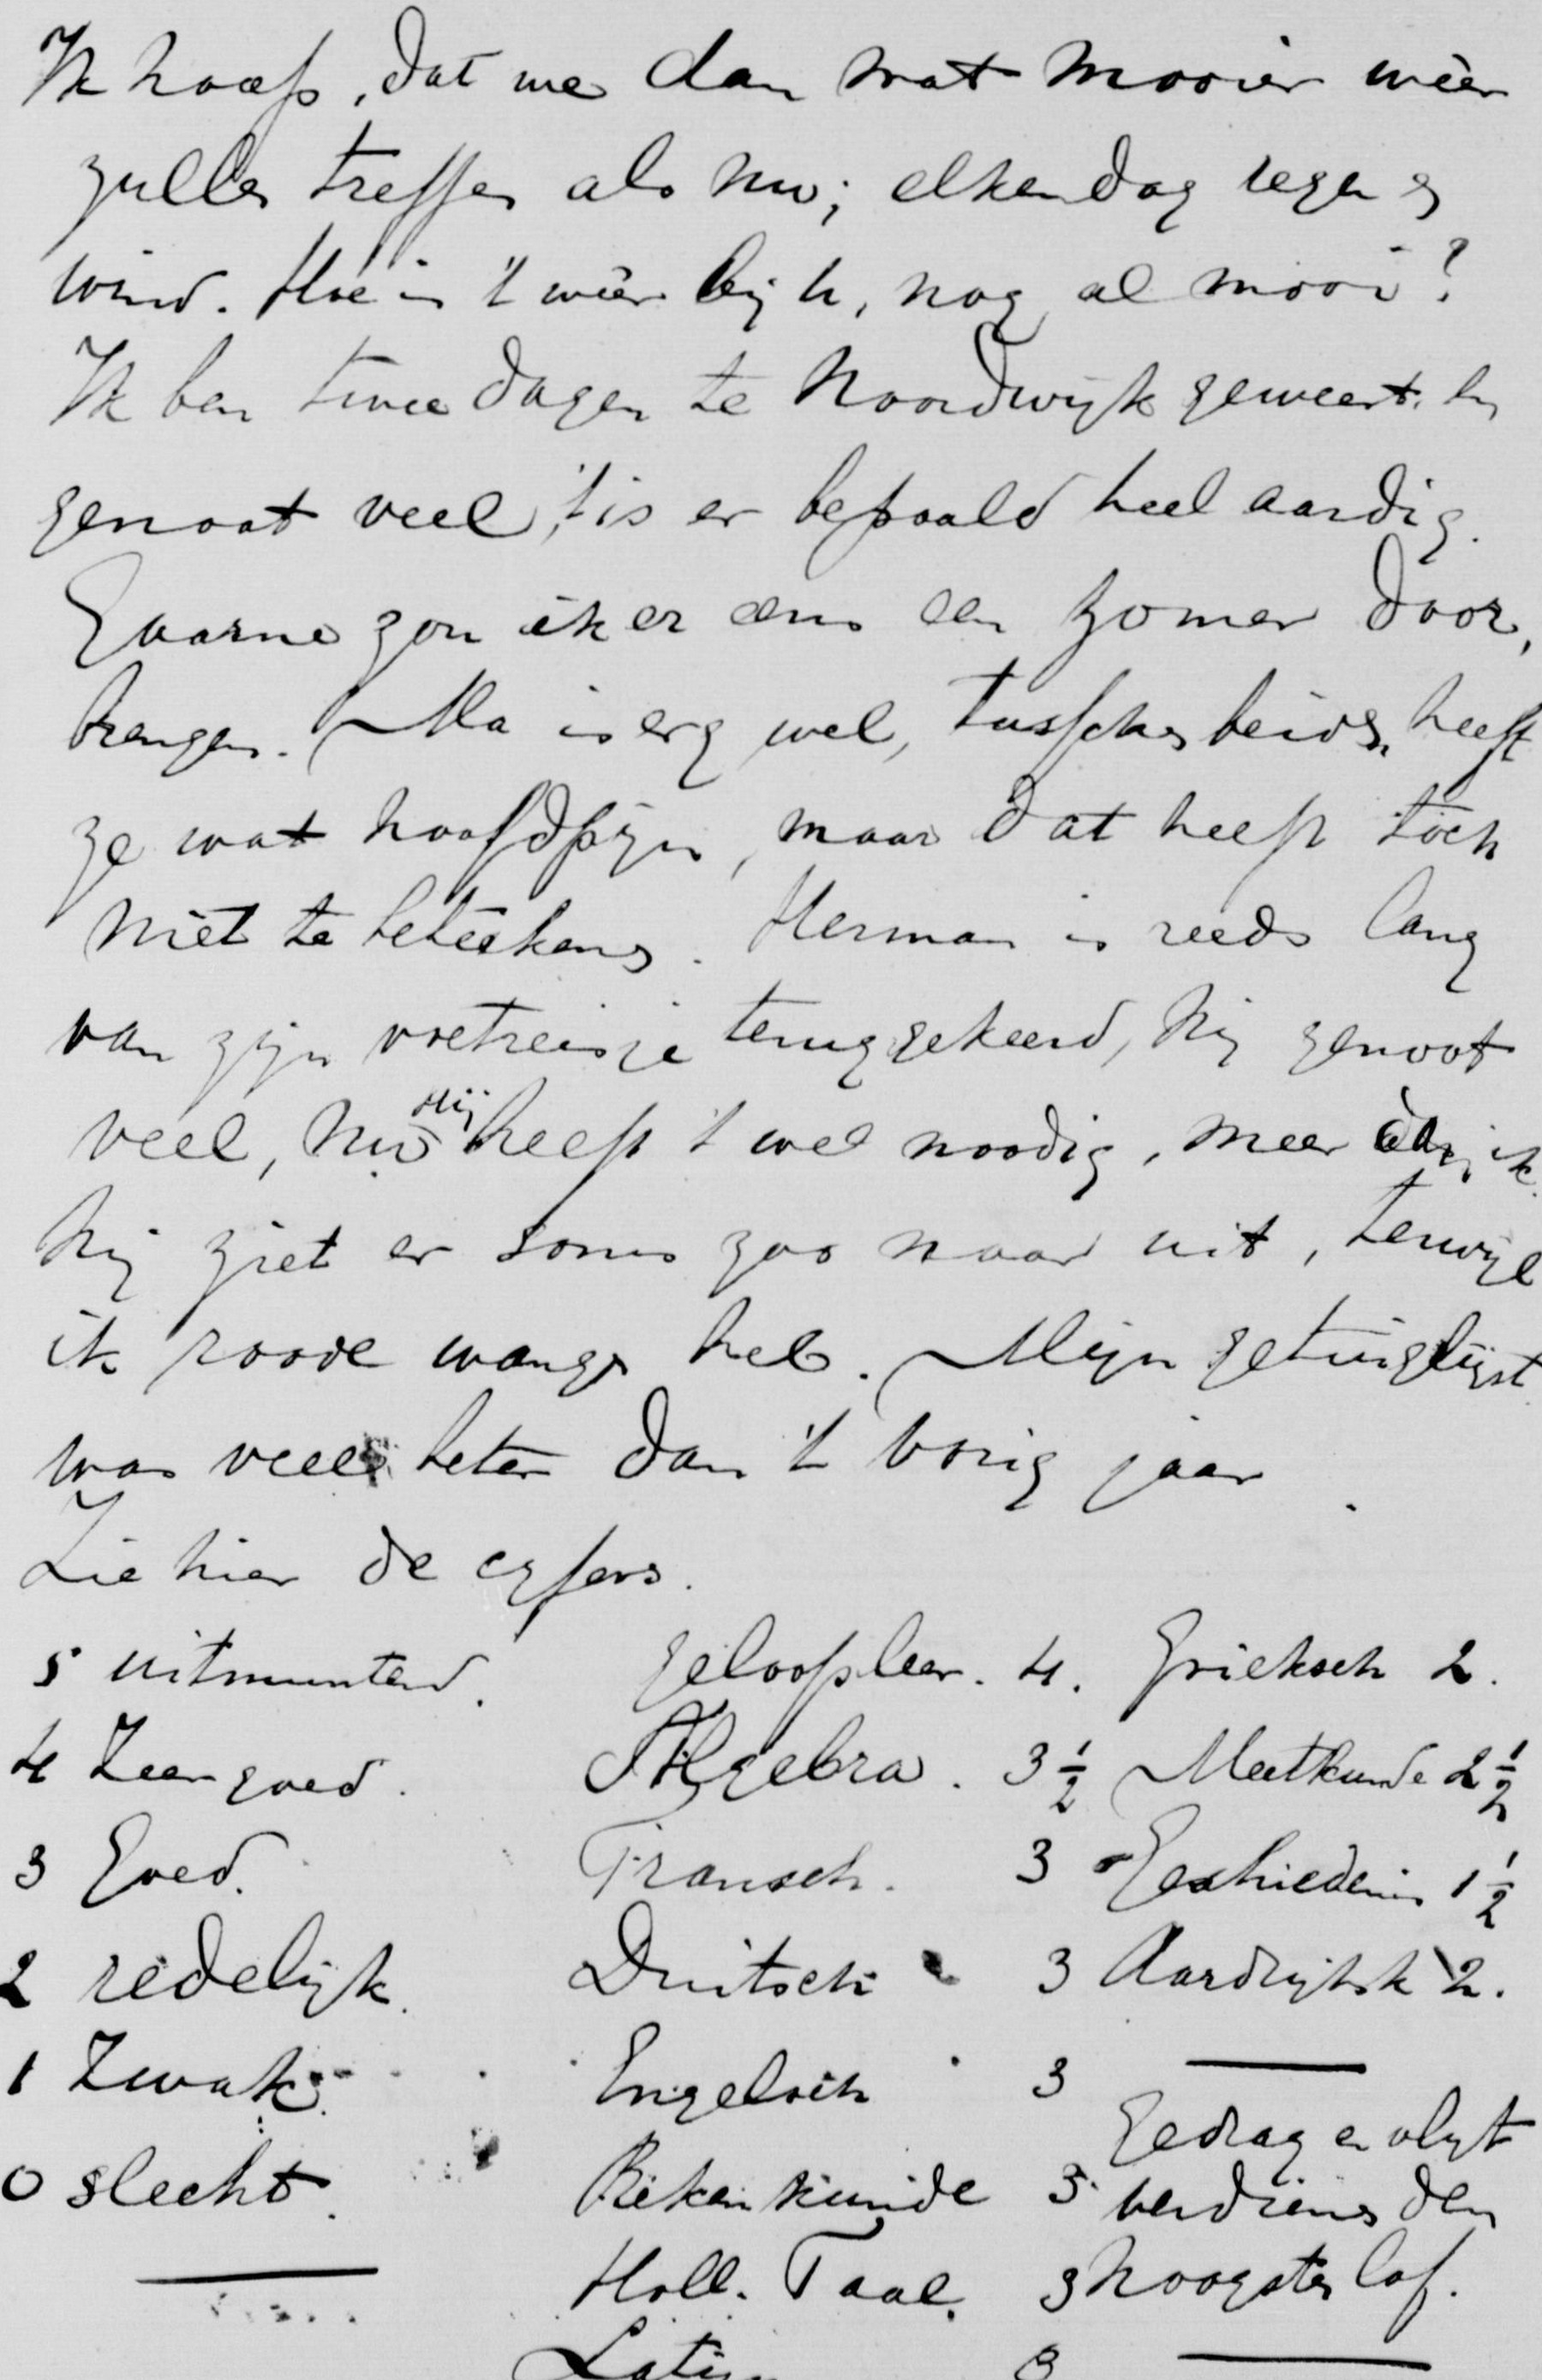 Ik hoop, dat we dan wat mooier weêr
zullen treffen als nu; elken dag regen en
wind. Hoe is 't weêr bij U, nog al mooi?
Ik ben twee dagen te Noordwijk geweest en
genoot veel, 't is er bepaald heel aardig.
Gaarne zou ik er eens een zomer door,
brengen. Ma is erg wel, tusschenbeiden heeft
ze wat hoofdpijn, maar dat heeft toch
niet te beteekenen. Herman is reeds lang
van zijn voetreisje teruggekeerd, hij genoot
veel, nu hij heeft 't wel noodig, meer dan ik.
hij ziet er soms zoo naar uit, terwijl
ik roode wangen heb. Mijn getuiglijst
was veel beter dan 't vorig jaar.
Zie hier de cyfers.
5 uitmuntend. Geloofsleer. 4. Grieksch 2.
4 Zeer goed. Algebra. 3 1/2 Meetkunde 2 1/2
3 Goed. Fransch. 3 Geschiedenis 1 1/2
2 redelijk. Duitsch 3 Aardrijksk 2.
1 Zwak. Engelsch 3
Gedrag en vlijt
0 slecht. Rekenkunde 3 verdienen den
Holl. Taal. 3 hoogsten lof.
Latijn 3